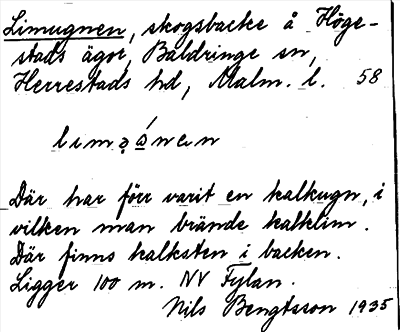 Limugnen, skogsbacke å Höge-
stads ägor, Baldringe sn,
Herrestads hd, Malm. l. 58
Där har förr varit en kalkugn, i
vilken man brände kalklim.
Där finns kalksten i backen.
Ligger 100 m. NV Fylan.
Nils Bengtsson 1935